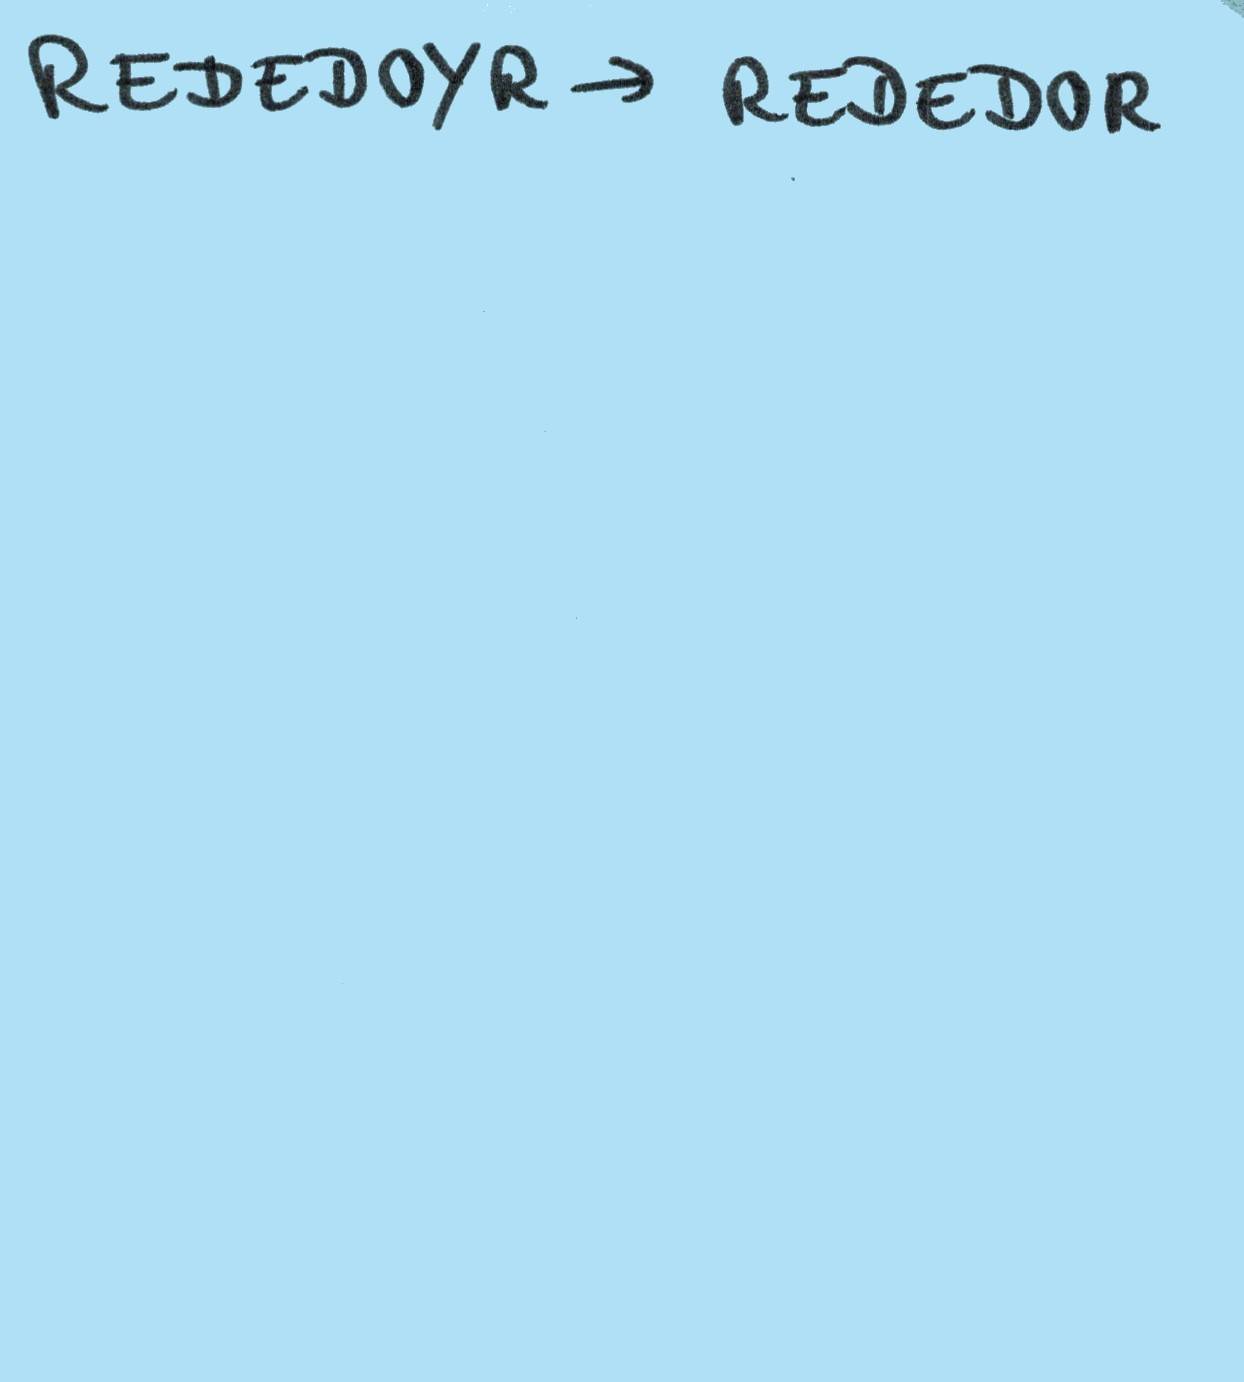 REDEDOYR → REDEDOR